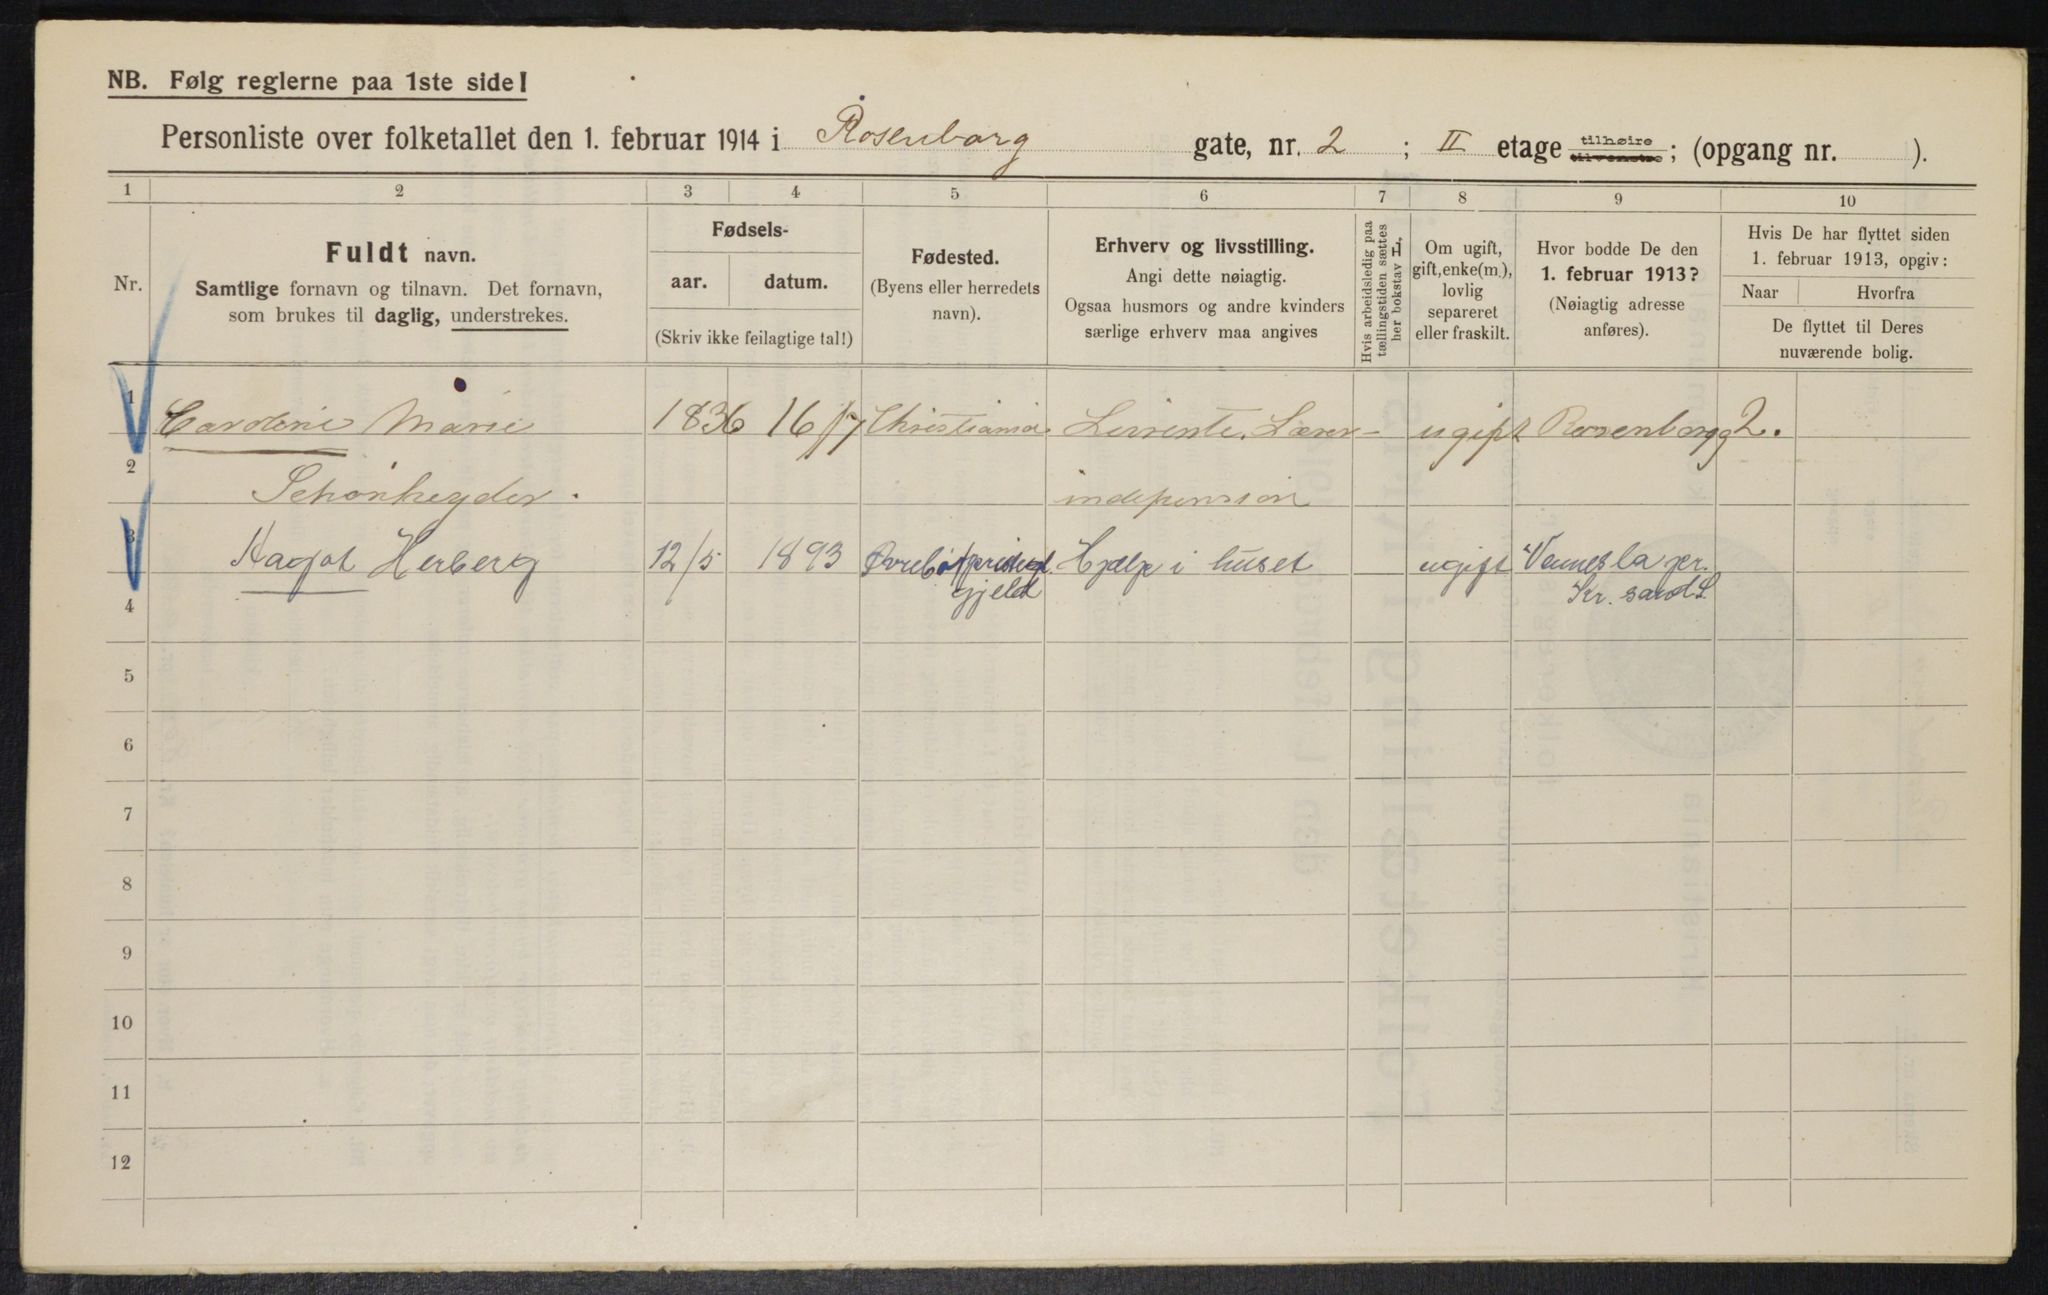 NB. Følg reglerne paa 1ste side!
Personliste over folketallet den 1. februar 1914 i Rosenborg gate, nr. 2 ; II etage tilhøire tilvenstre ; (opgang nr. ).
1 2 3 4 5 6 7 8 9 10
Nr.
Fuldt navn.
Samtlige fornavn og tilnavn. Det fornavn,
som brukes til daglig, understrekes.
Fødsels-
aar. datum.
(Skriv ikke feilagtige tal!)
Fødested.
(Byens eller herredets
navn).
Erhverv og livsstilling.
Angi dette nøiagtig.
Ogsaa husmors og andre kvinders
særlige erhverv maa angives
Hvis arbeidsledig paa
tællingstiden sættes
her bokstav L.
Om ugift,
gift, enke(m.),
lovlig
separeret
eller fraskilt.
Hvor bodde De den
1. februar 1913?
(Nøiagtig adresse
anføres).
Hvis De har flyttet siden
1. februar 1913, opgiv:
Naar Hvorfra
De flyttet til Deres
nuværende bolig.
1 Caroline Marie 1836 16/7 Christiania Livrente. Lærer- ugift Rosenborgg 2.
2 Schønheyder. indepension
3 Hagot Herberg 12/5 1893 Hjælp i huset ugift Vennesla pr.
4 gjeld Kr. sand S.
5
6
7
8
9
10
11
12